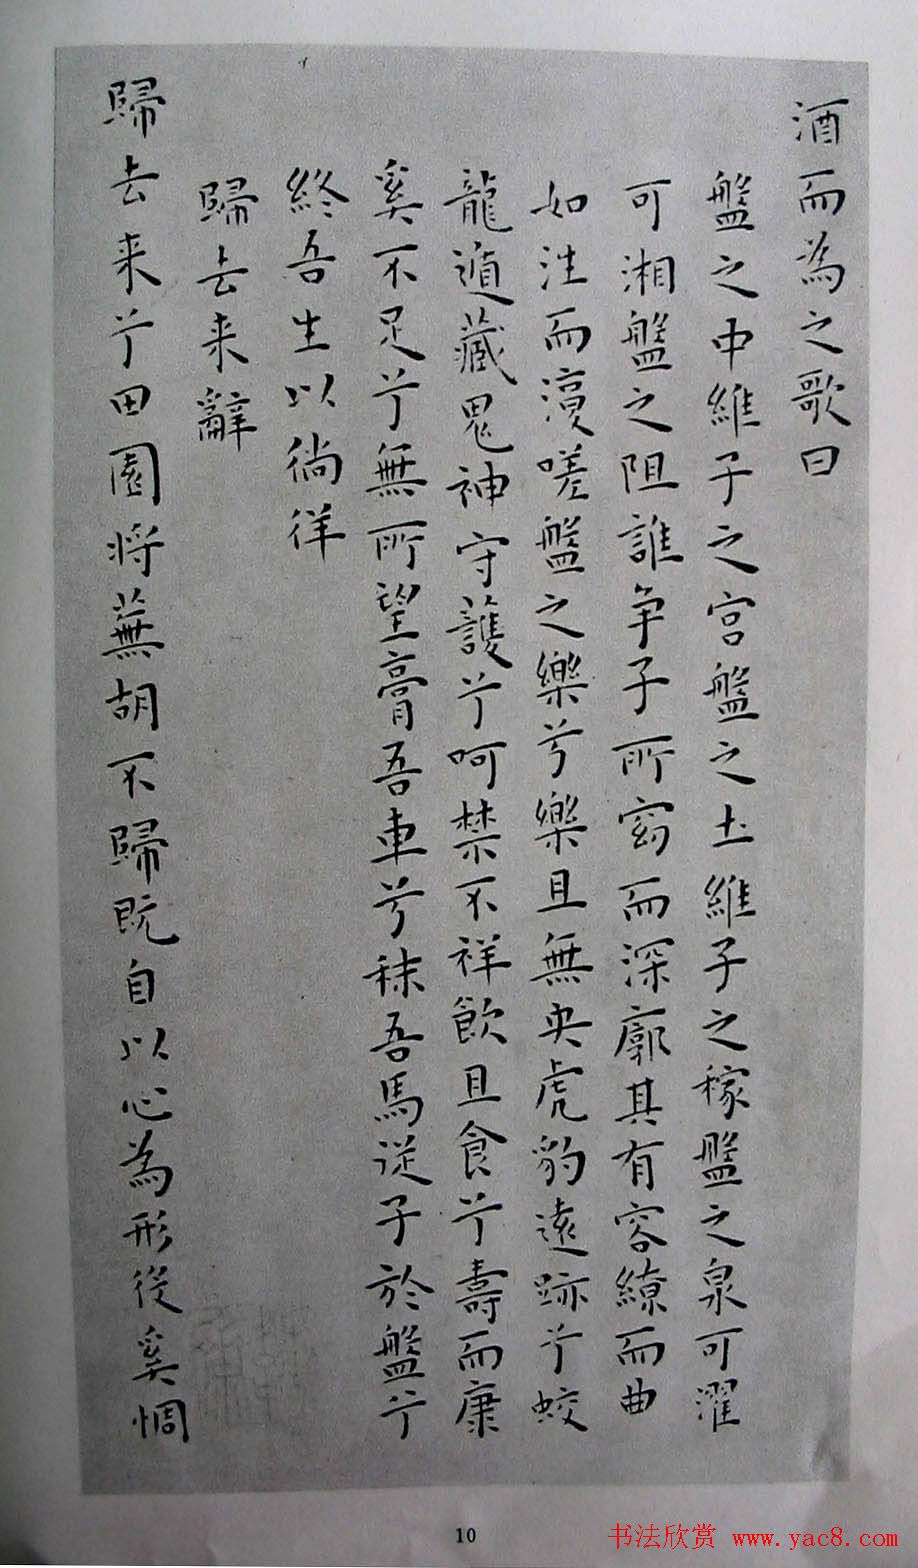 酒而為之歌曰
盤之中維子之宮盤之土維子之稼盤之泉可濯
可湘盤之阻誰争子所窈而深廓其有容繚而曲
如往而澓嗟盤之樂兮樂且無央虎豹遠跡兮蛟
龍遁藏鬼神守護兮呵禁不祥飲且食兮壽而康
奚不足兮無所望膏吾車兮秣吾馬從子於盤兮
終吾生以徜徉
歸去来辭
歸去来兮田園将蕪胡不歸既自以心為形役奚惆
10
书法欣赏 www.yac8.com